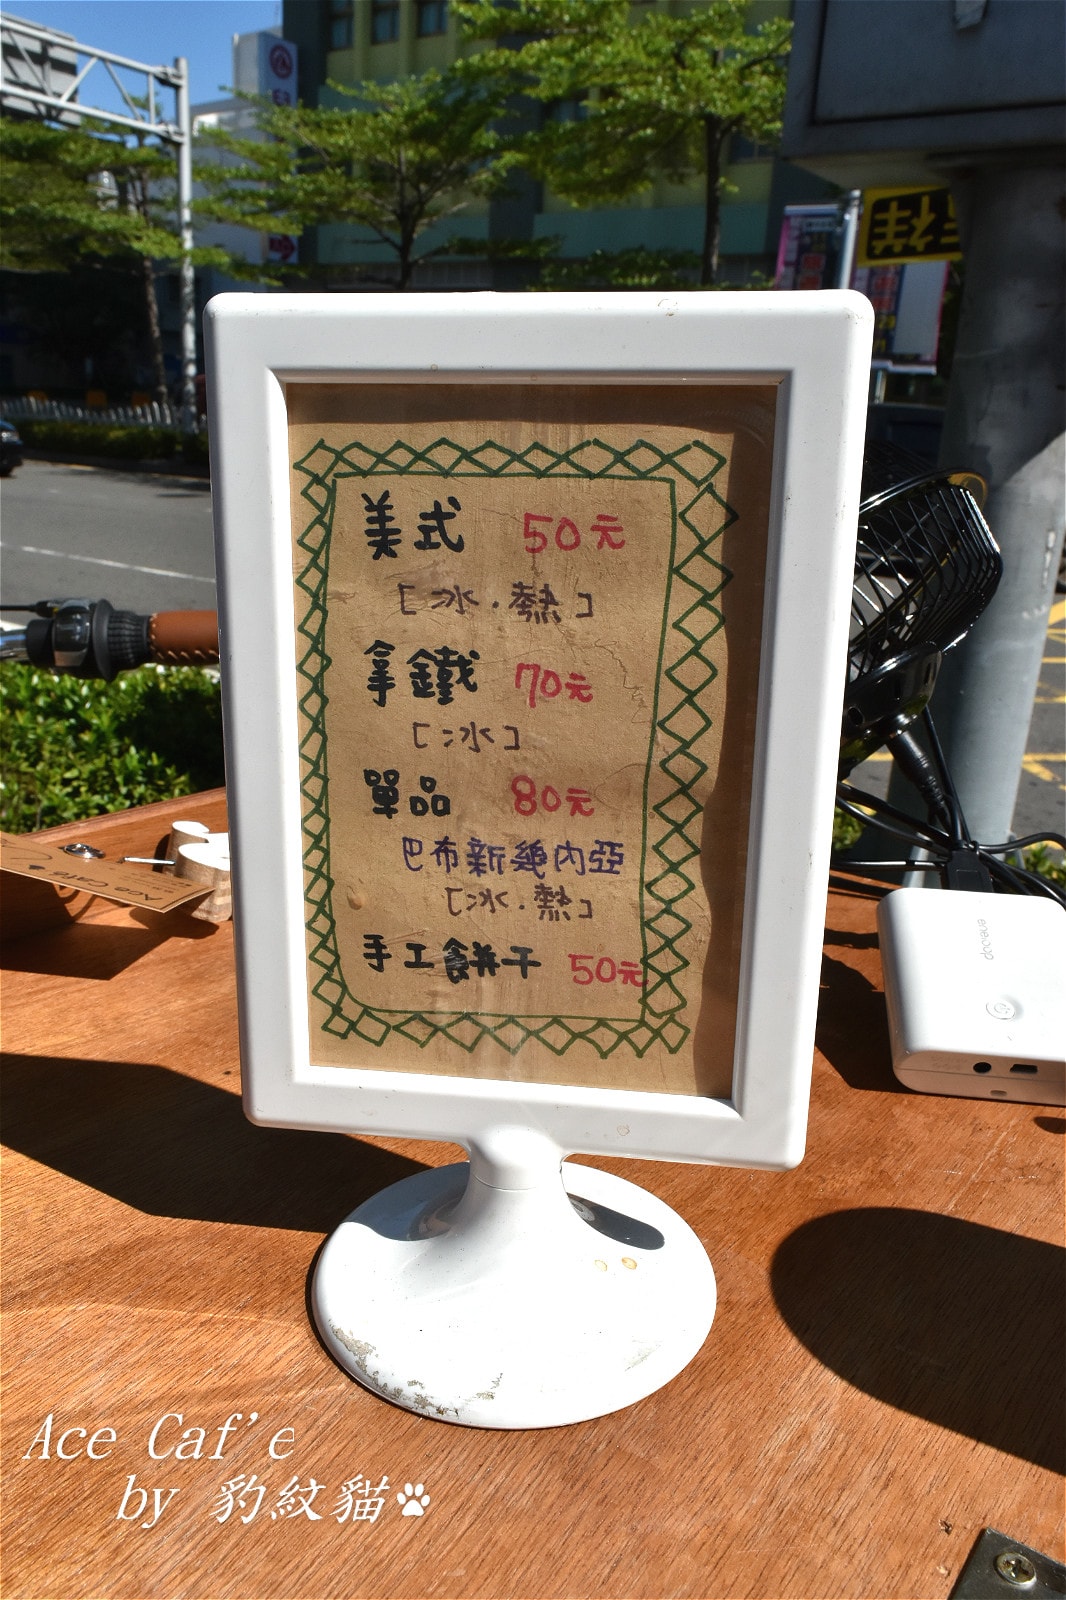 美式 50元
[冰.熱]
拿鐵 70元
[冰]
單品 80元
巴布新幾內亞
[冰.熱]
手工餅干 50元
Ace Cafe
enerpad
Ace Caf'e
by 豹紋貓